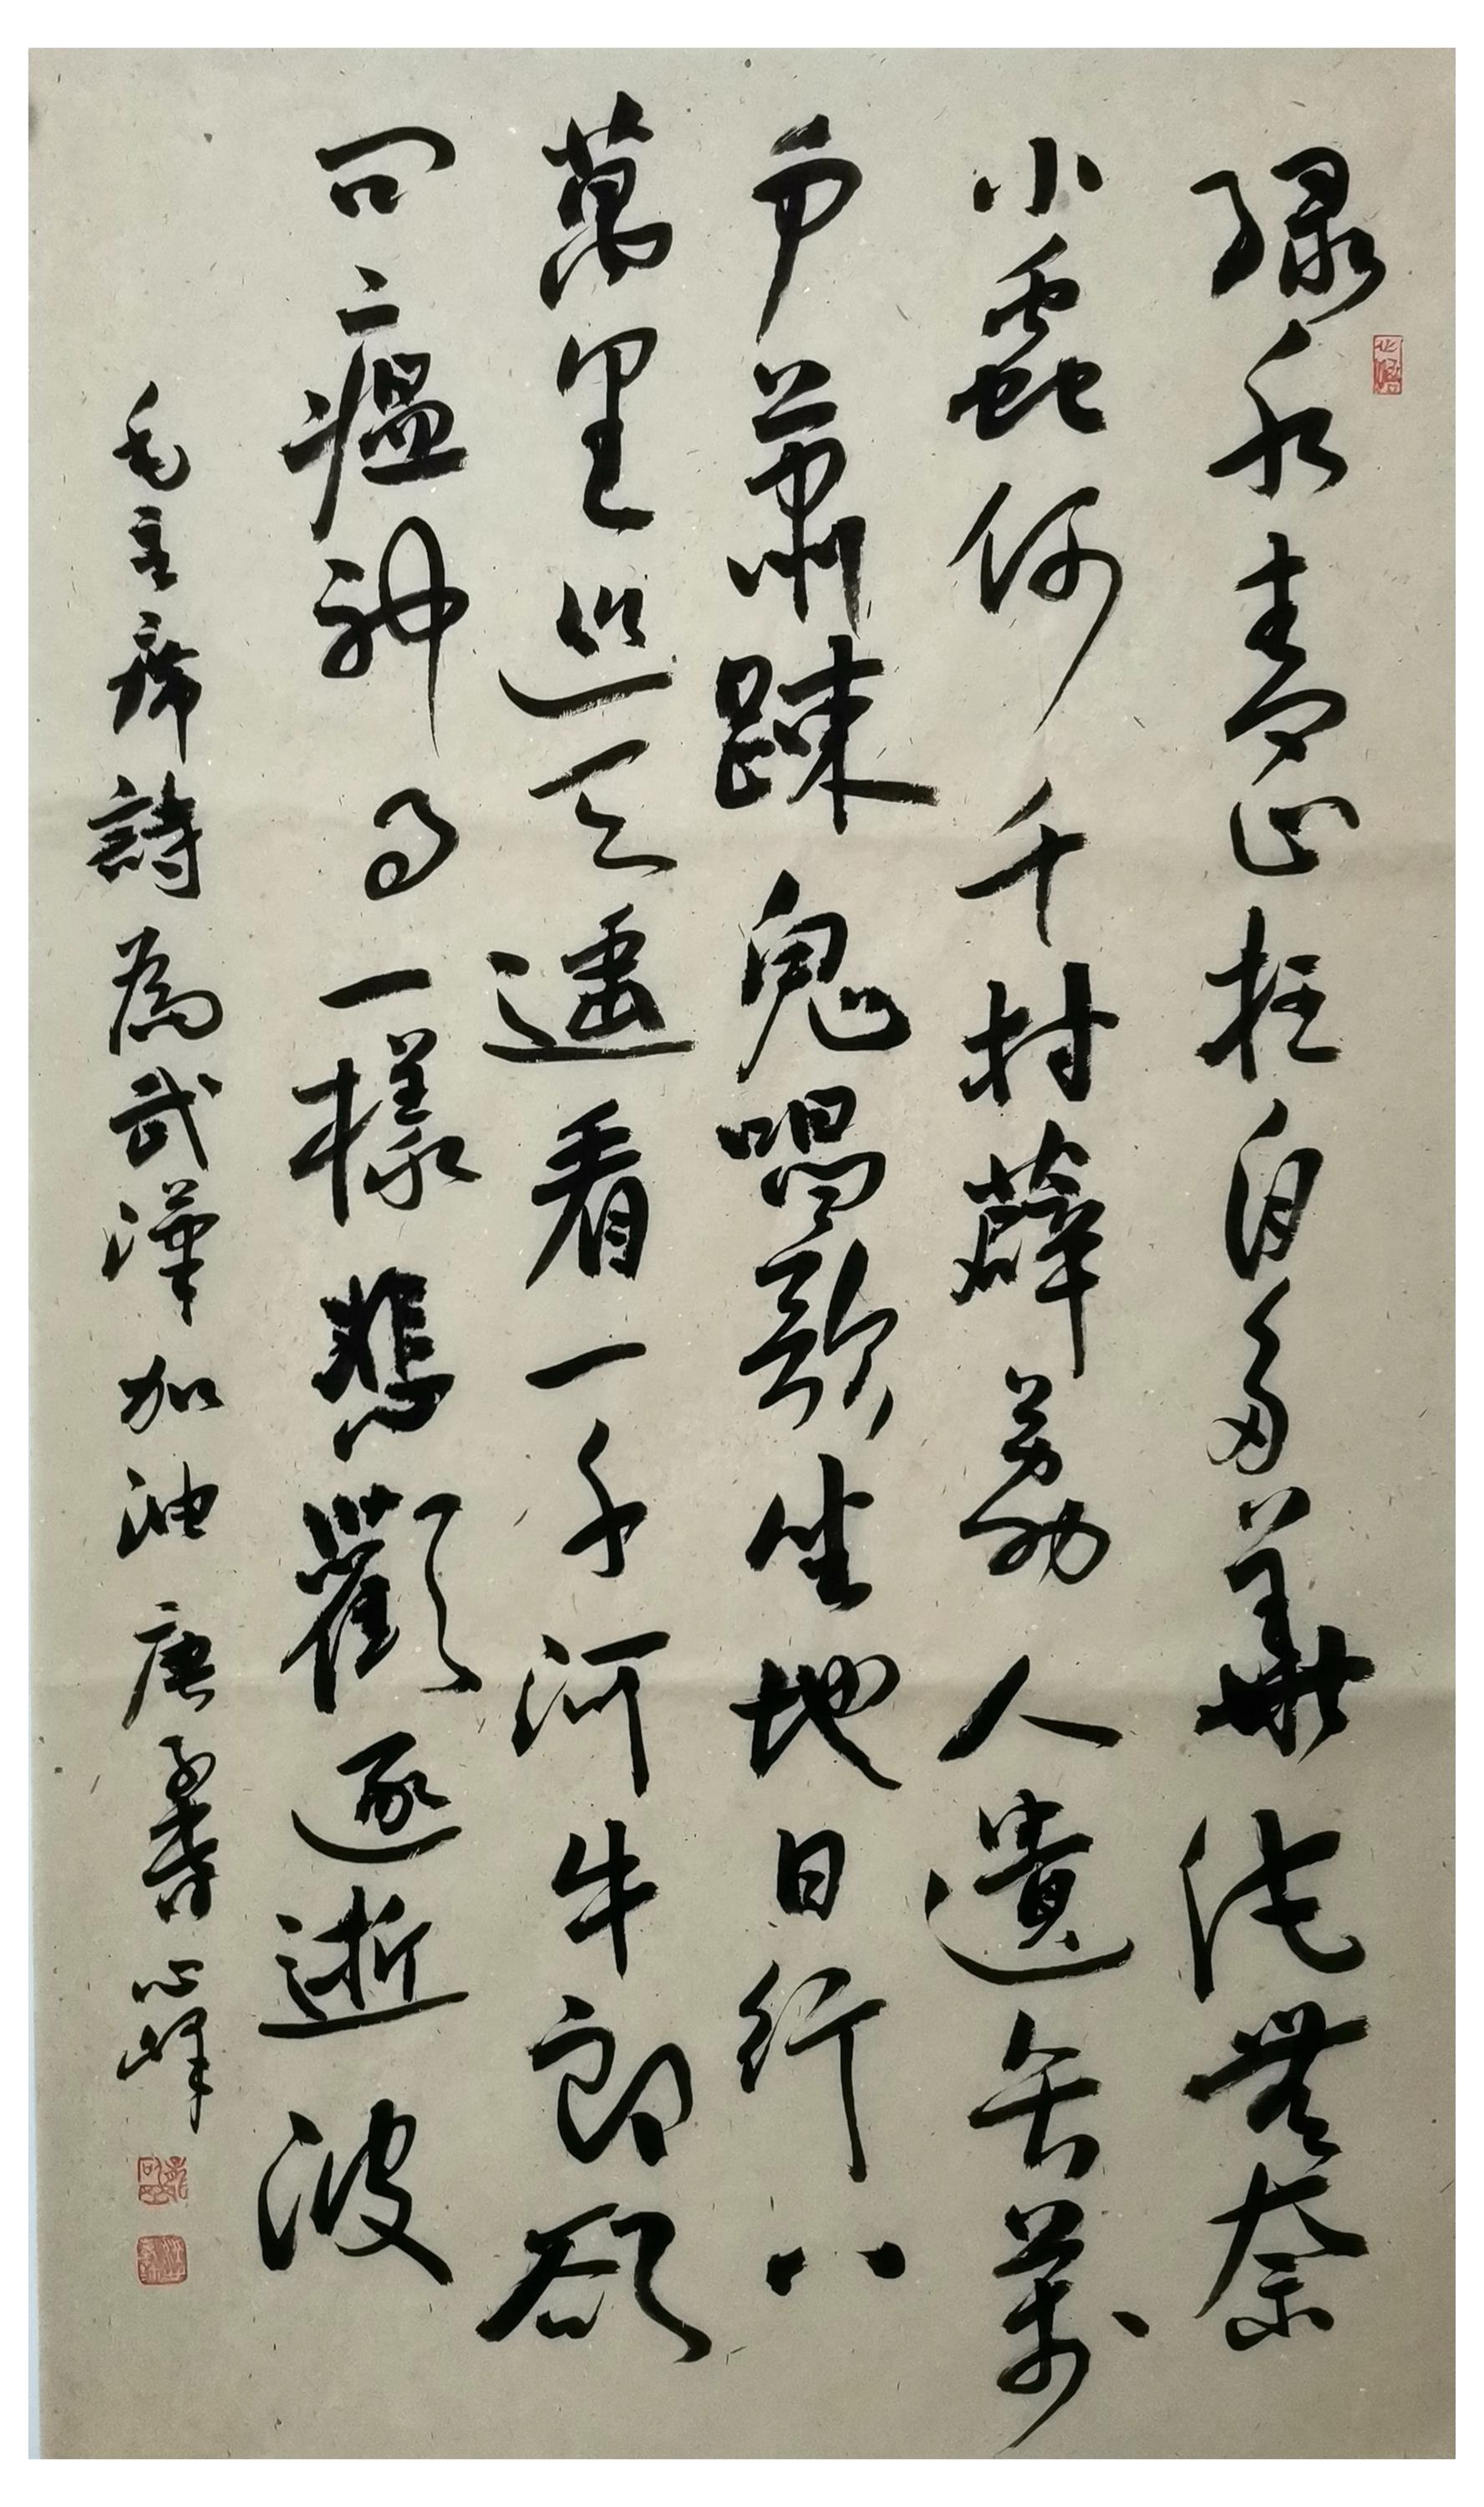 綠水青山枉自多華佗無奈
小蟲何千村薜荔人遺矢萬
戶蕭疎鬼唱歌坐地日行八
萬里巡天遙看一千河牛郎欲
问瘟神事一樣悲歡逐逝波
毛主席詩為武漢加油庚子春心峰